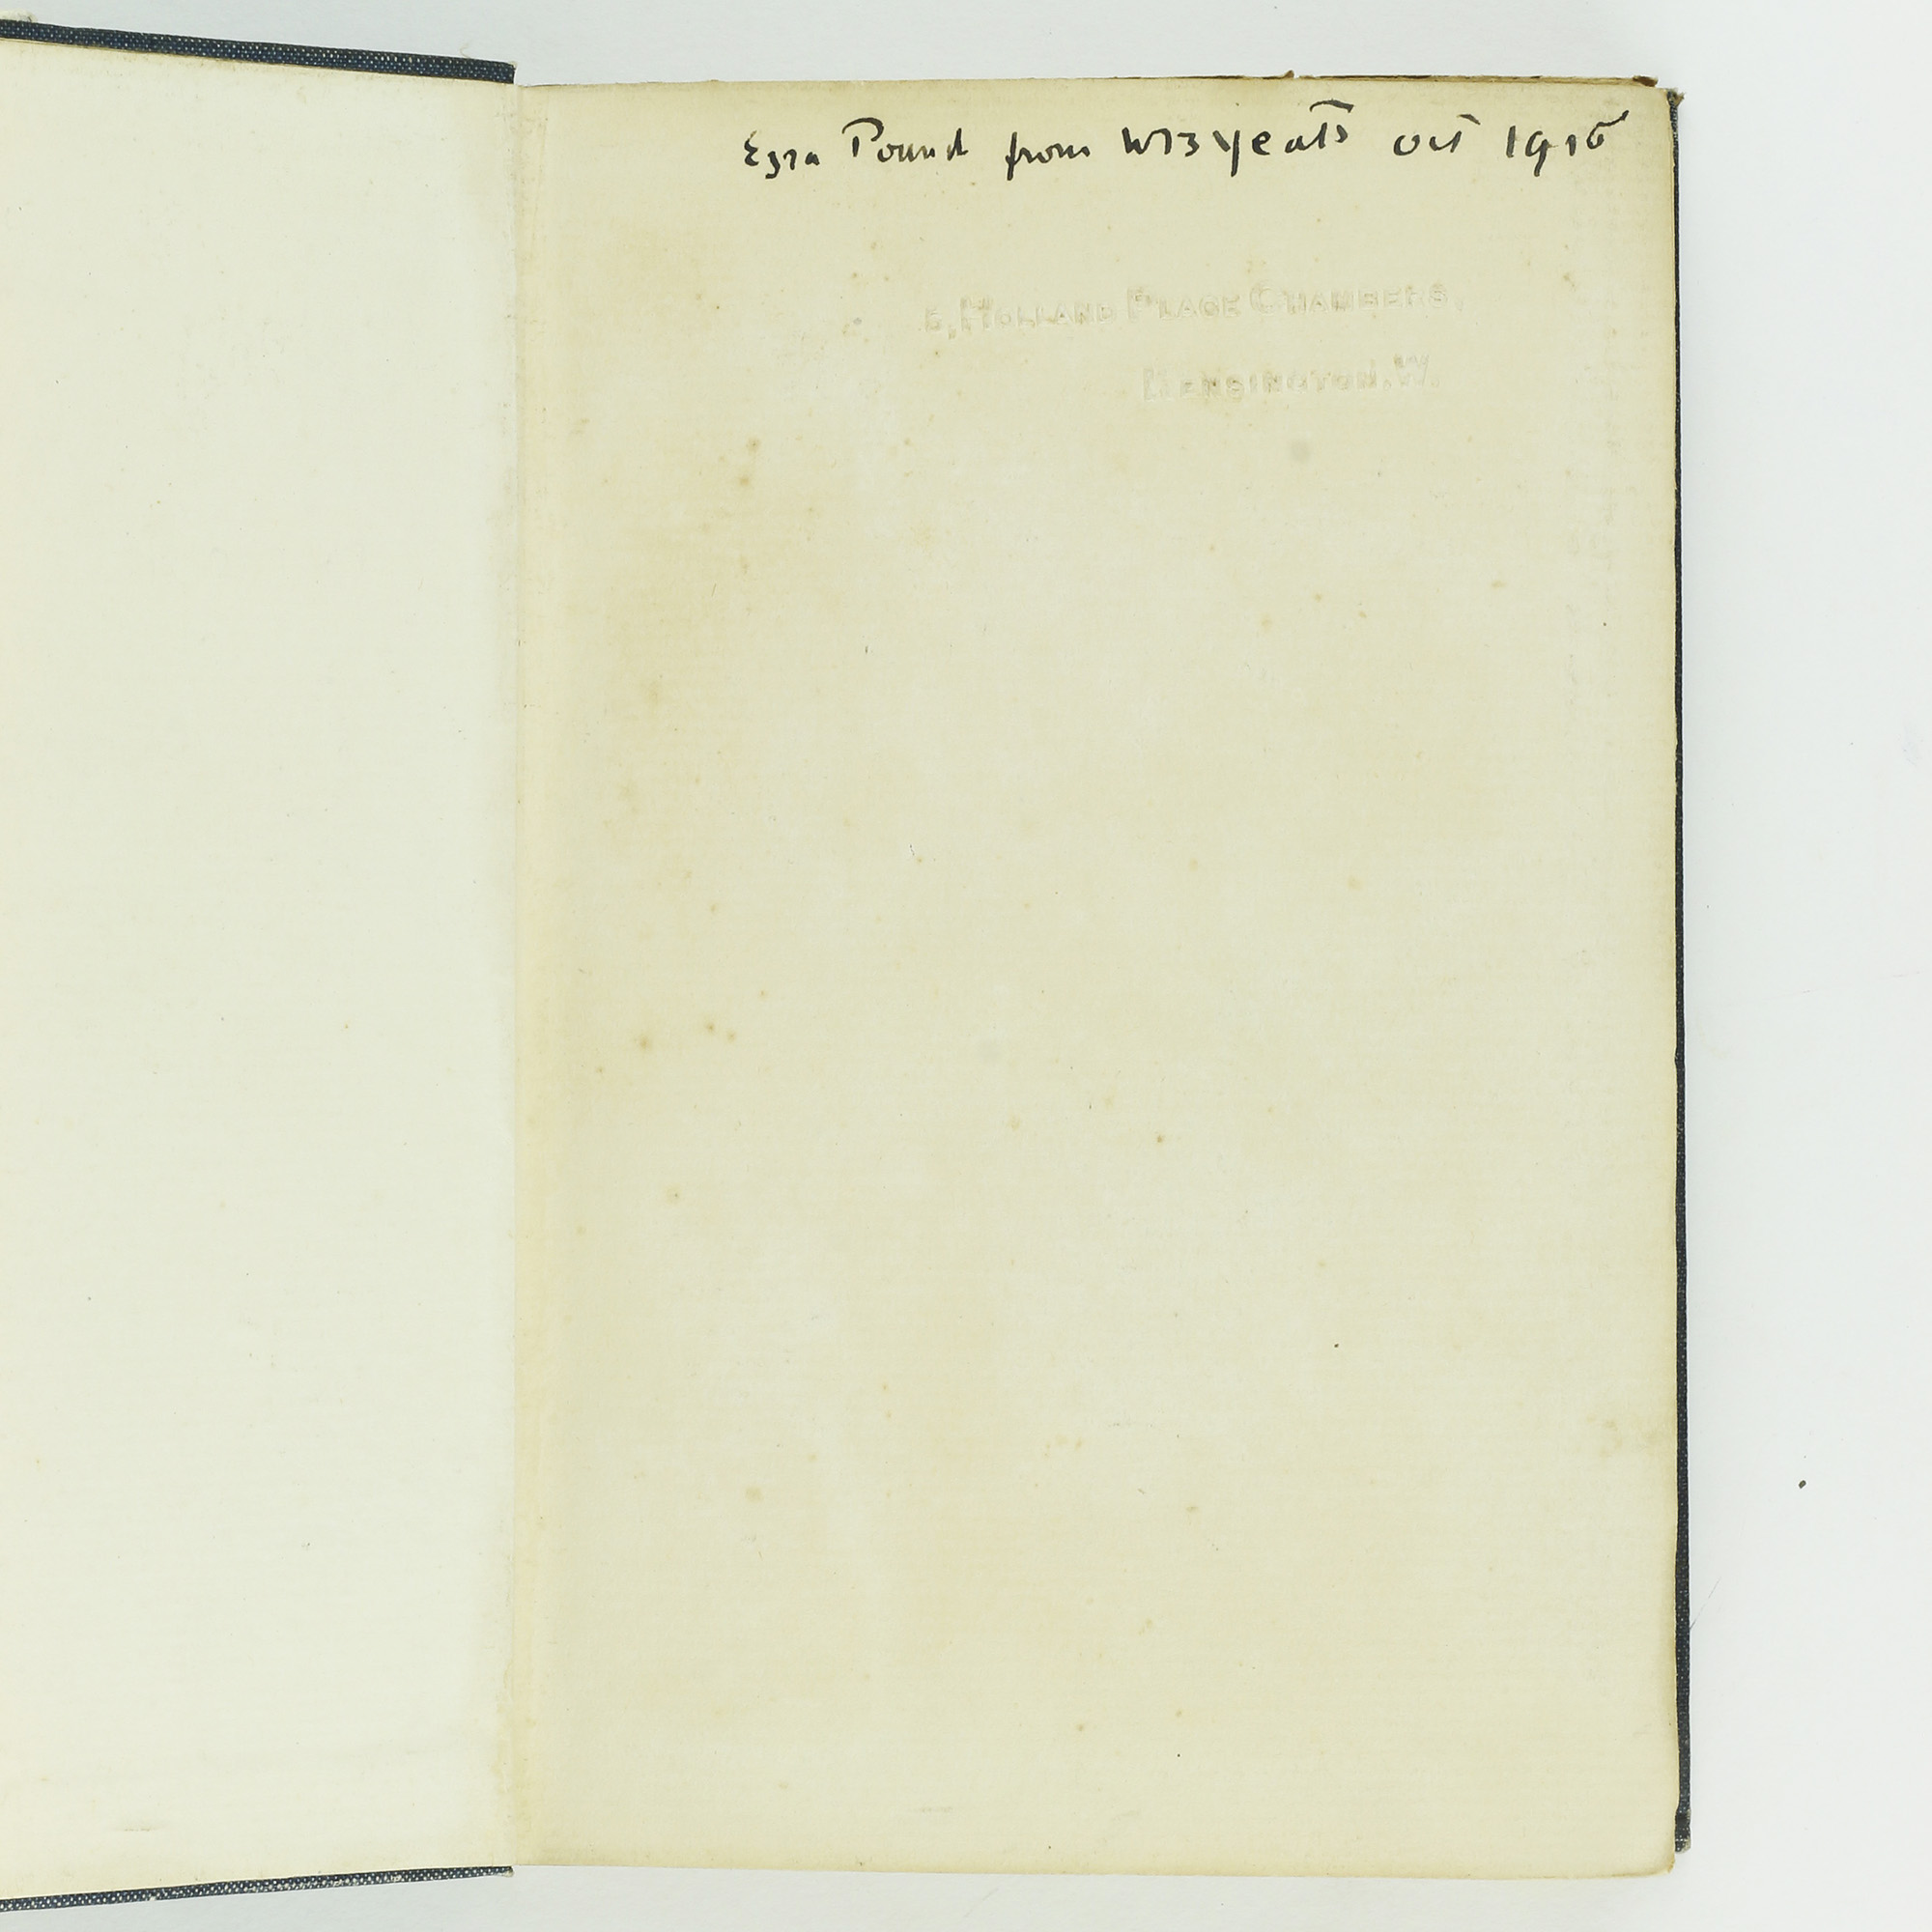 Ezra Pound from WB Yeats Oct 1916
5, HOLLAND PLACE CHAMBERS,
KENSINGTON. W.